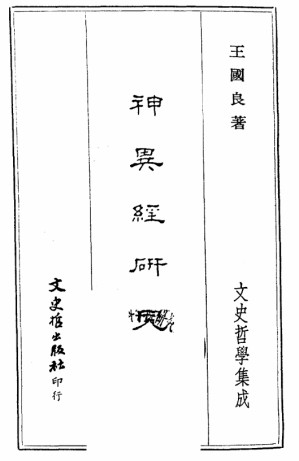 王國良著
文史哲學集成
神異經研究
文史哲出版社印行